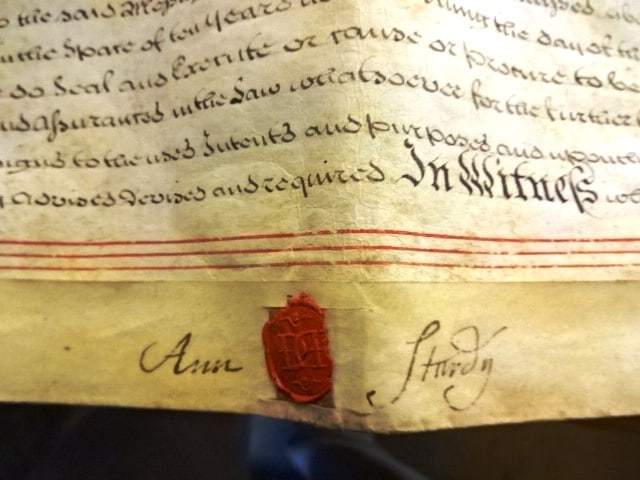 the said
in the Space of ten Years
the day of the
do Seal and Execute or cause or procure to be
Assurances in the Law whatsoever for the further
to the uses Intents and purposes and upon the
Advised Devised and required In Witness
Ann Sturdy